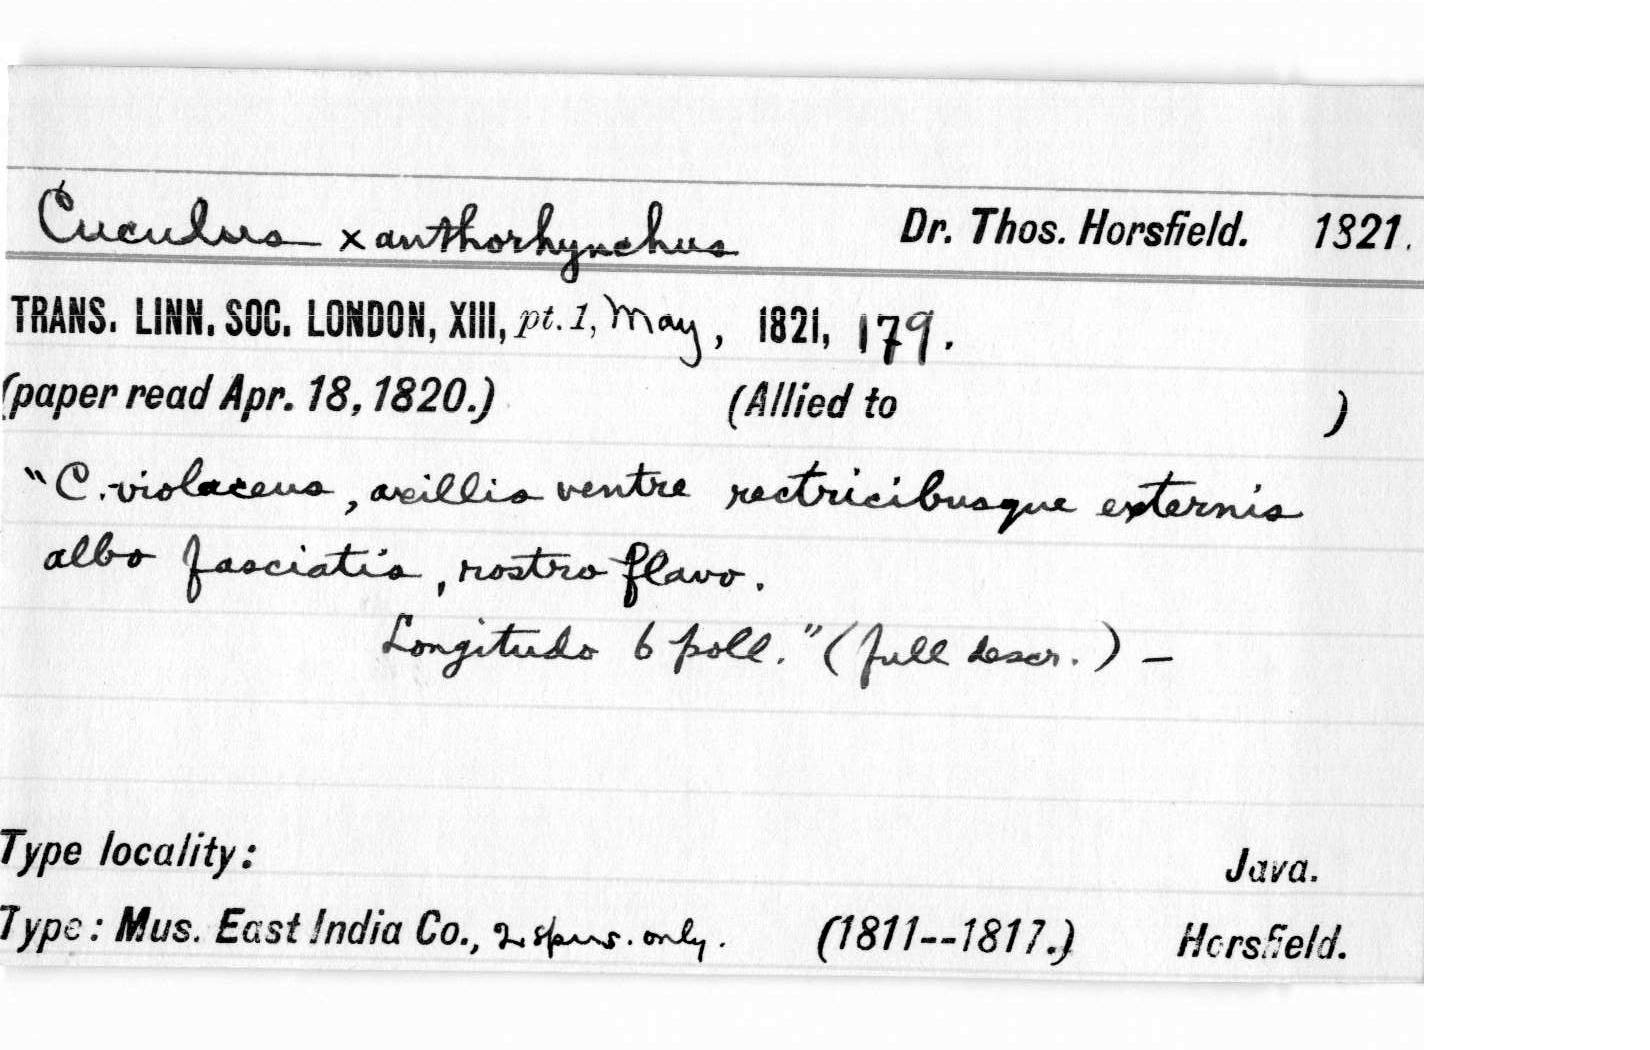 Cuculus xanthorhynchus Dr. Thos. Horsfield. 1821.
TRANS. LINN. SOC. LONDON, XIII, pt. 1, May, 1821, 179.
(paper read Apr. 18, 1820.) (Allied to )
"C. violaceus, axillis ventre rectricibusque externis
albo fasciatis, rostro flavo.
Longitudo 6 poll." (full descr.) —
Type locality: Java.
Type: Mus. East India Co., 2 spms. only. (1811--1817.) Horsfield.